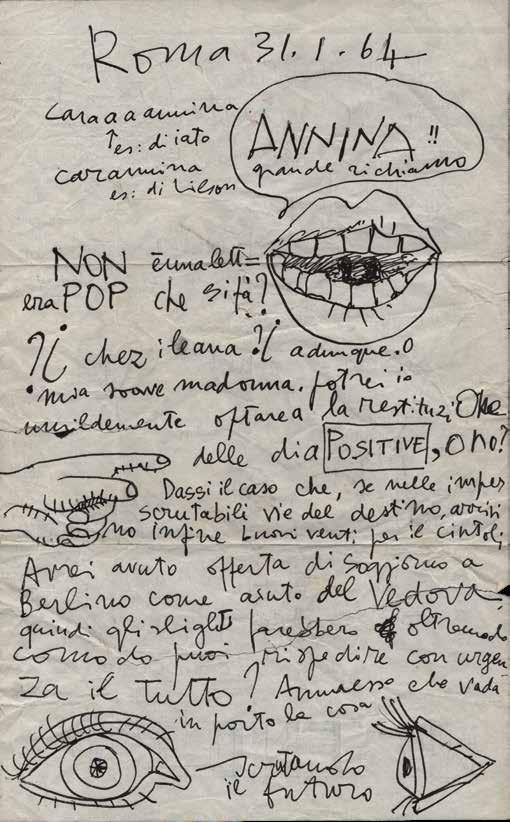 Roma 31.1.64
caraaaannina
es: di iato
carannina
ANNINA !!
grande richiamo
NON è una lett=
era POP che si fà?
?¿ chez ileana ?¿ adunque. o
mia soave madonna. potrei io
umilmente optare a la restituziOne
delle dia POSITIVE, o no?
Dassi il caso che, se nelle imper
scrutabili vie del destino, arrivi
no infine buoni venti per il cintoli
Avrei avuto offerta di Soggiorno a
Berlino come aiuto del Vedova.
quindi gli slights farebbero oltremodo
comodo puoi rispedire con urgen
za il tutto? Ammesso che vada
in porto la cosa
scrutando
il futuro